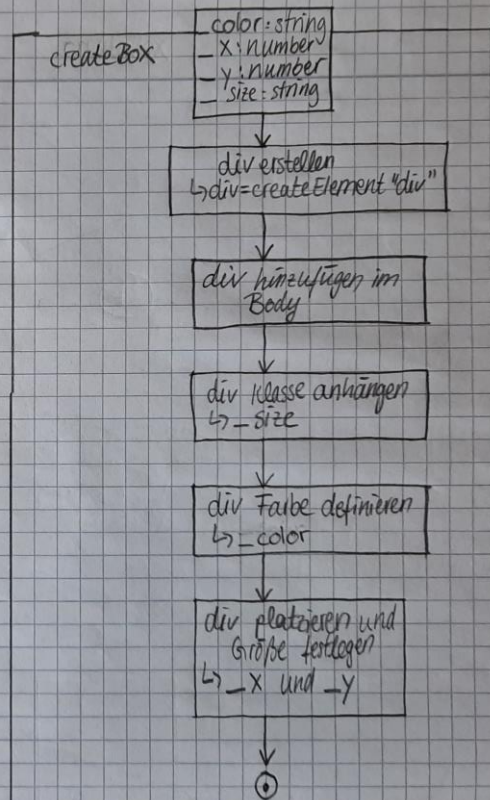 createBox
_color:string
_x:number
_y:number
_size:string
div erstellen
↳div=createElement"div"
div hinzufügen im
Body
div Klasse anhängen
↳_size
div Farbe definieren
↳_color
div platzieren und
Größe festlegen
↳_x und _y